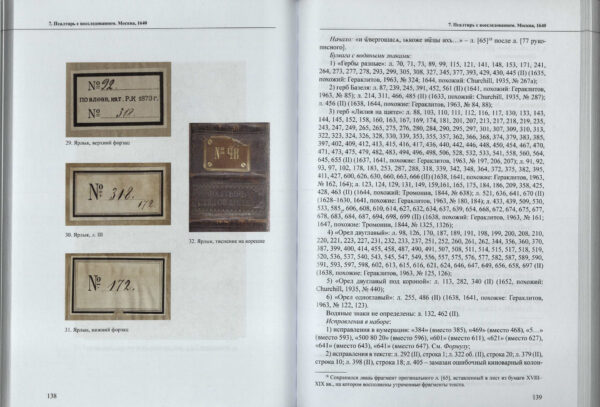 7. Псалтирь с воследованием. Москва, 1640
№ 92.
ПО ВЛОЖН. КАТ. Р.К 1870 г.
№ 318
29. Ярлык, верхний форзац
№ 318.
172
30. Ярлык, л. III
№ 172.
31. Ярлык, нижний форзац
32. Ярлык, тиснение на корешке
138
7. Псалтирь с воследованием. Москва, 1640
– л. [65]¹⁸ после л. [77 руко-
писного].
Бумага с водяными знаками:
1) «Гербы разные»: л. 70, 71, 73, 89, 99, 115, 121, 141, 148, 153, 171, 241,
264, 273, 277, 278, 293, 299, 305, 308, 327, 345, 377, 393, 429, 430, 445 (II) (1635,
похожий: Гераклитов, 1963, № 324; 1644, похожий: Churchill, 1935, № 267a);
2) герб Базеля: л. 87, 239, 245, 391, 452, 561 (II) (1641, похожий: Гераклитов,
1963, № 85); л. 214, 311, 466, 485 (II) (1633, похожий: Churchill, 1935, № 287);
л. 456 (II) (1638, 1644, похожие: Гераклитов, 1963, № 84, 88);
3) герб «Лилия на щите»: л. 88, 103, 110, 111, 112, 116, 117, 130, 133, 143,
144, 145, 152, 158, 160, 163, 167, 169, 174, 181, 201, 207, 213, 217, 218, 219, 235,
243, 247, 249, 265, 265, 275, 276, 280, 284, 290, 295, 297, 301, 307, 309, 310, 313,
322, 323, 324, 326, 328, 330, 339, 353, 355, 357, 362, 366, 368, 374, 379, 383, 385,
397, 402, 409, 412, 413, 415, 416, 417, 436, 440, 442, 446, 448, 450, 454, 467, 470,
471, 473, 475, 479, 482, 483, 494, 496, 498, 506, 528, 532, 533, 541, 558, 560, 564,
645, 655 (II) (1637, 1641, похожие: Гераклитов, 1963, № 197, 206, 207); л. 91, 92,
93, 97, 102, 178, 183, 253, 287, 288, 318, 339, 342, 348, 364, 372, 375, 382, 395,
411, 427, 600, 626, 630, 660, 663, 666 (II) (1638, 1641, похожие: Гераклитов, 1963,
№ 162, 164); л. 123, 124, 129, 131, 149, 159, 161, 165, 175, 184, 186, 209, 358, 425,
428, 463 (II) (1644, похожий: Тромонин, 1844, № 638); л. 521, 636, 641, 670 (II)
(1628–1630, 1641, похожие: Гераклитов, 1963, № 180, 184); л. 433, 439, 509, 530,
533, 585, 606, 608, 610, 614, 627, 632, 634, 637, 639, 654, 668, 672, 674, 675, 677,
678, 683, 684, 687, 694, 698, 699 (II) (1638, похожий: Гераклитов, 1963, № 161;
1647, похожие: Тромонин, 1844, № 1325, 1326);
4) «Орел двуглавый»: л. 98, 126, 170, 187, 189, 191, 198, 199, 200, 208, 210,
220, 221, 223, 227, 231, 232, 233, 237, 251, 252, 260, 261, 262, 344, 356, 360, 370,
387, 399, 400, 414, 455, 458, 487, 490, 491, 507, 508, 511, 514, 515, 517, 518, 519,
520, 536, 537, 540, 543, 545, 547, 549, 556, 557, 575, 576, 577, 582, 587, 589, 590,
591, 593, 597, 598, 602, 613, 615, 616, 621, 624, 646, 647, 649, 656, 658, 697 (II)
(1638, похожие: Гераклитов, 1963, № 125, 126);
5) «Орел двуглавый под короной»: л. 113, 282, 340 (II) (1652, похожий:
Churchill, 1935, № 440);
6) «Орел одноглавый»: л. 255, 486 (II) (1638, 1641, похожие: Гераклитов,
1963, № 122, 123).
Водяные знаки не определены: л. 132, 462 (II).
Исправления в наборе:
1) исправления в нумерации: «384» (вместо 385), «469» (вместо 468), «5...»
(вместо 593), «500 80 20» (вместо 596), «601» (вместо 611), «621» (вместо 627),
«641» (вместо 643), «641» (вместо 647). См. Формулу;
2) исправления в тексте: л. 292 (II), строка 1; л. 322 об. (II), строка 20; л. 379 (II),
строка 10; л. 398 (II), строка 18; л. 405 – замазан ошибочный киноварный колон-
¹⁸ Сохранился лишь фрагмент оригинального л. [65], вставленный в лист из бумаги XVIII–
XIX вв., на котором восполнены утраченные фрагменты текста.
139